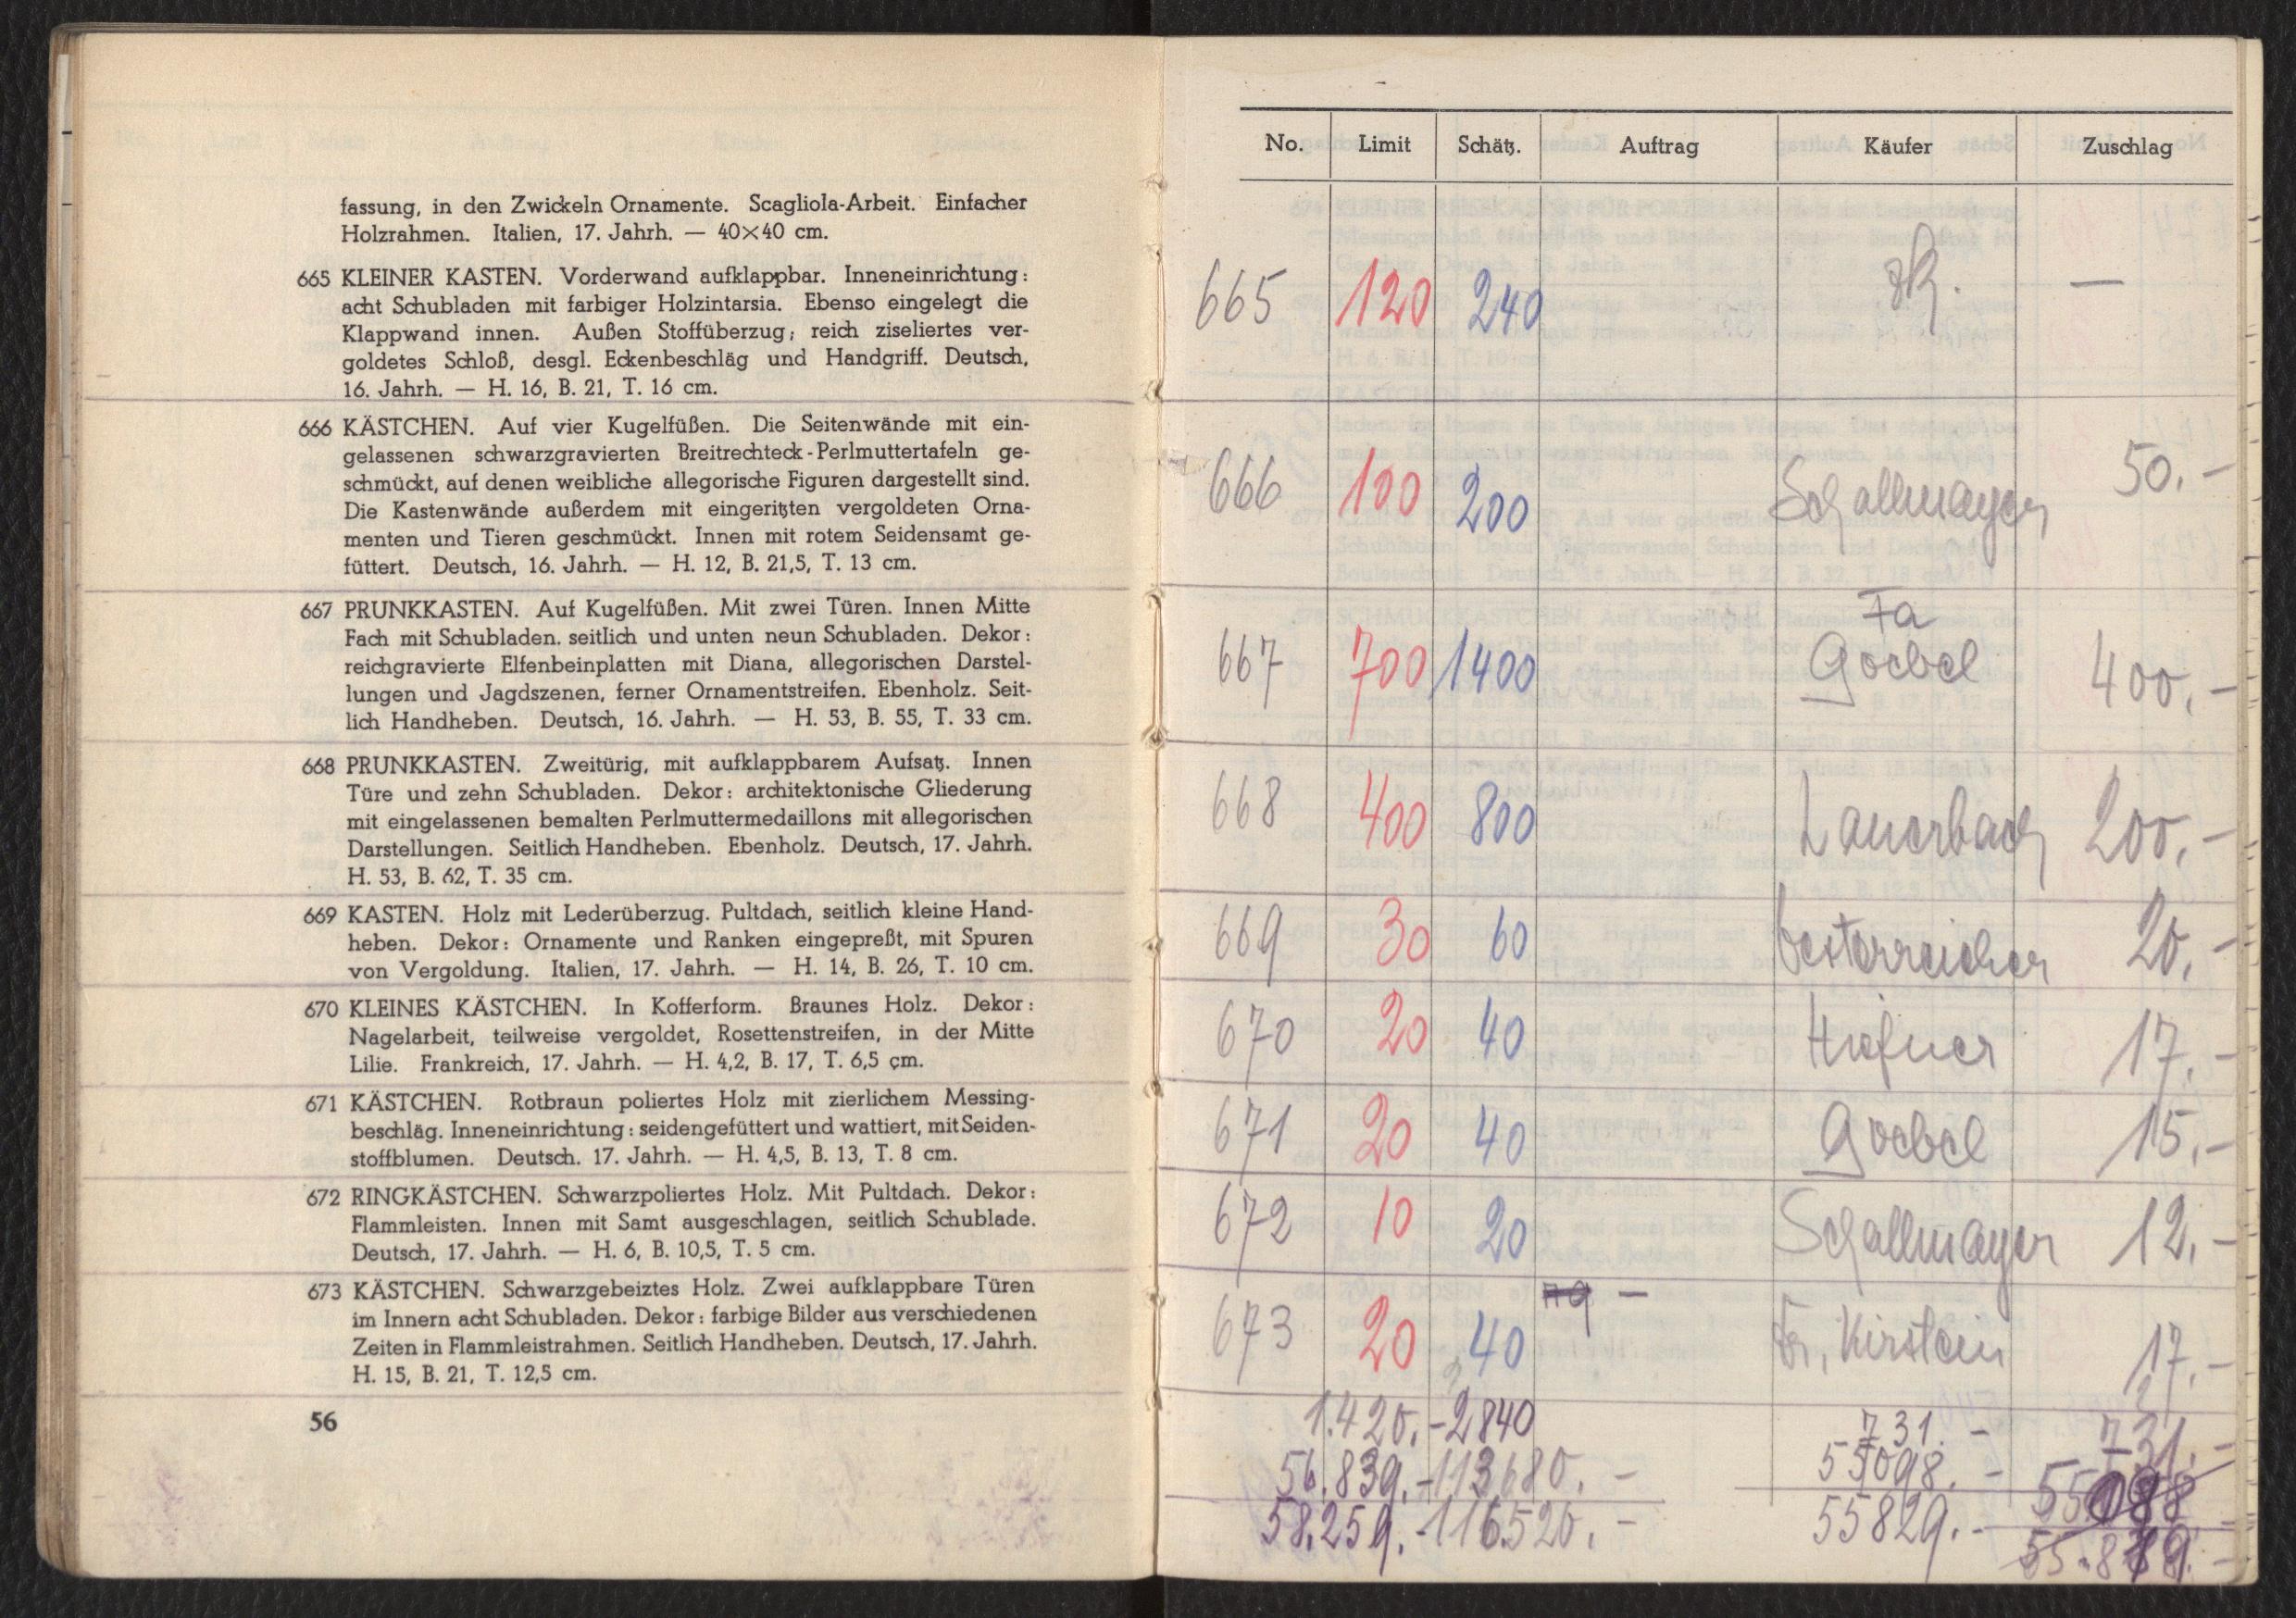 fassung, in den Zwickeln Ornamente. Scagliola-Arbeit. Einfacher
Holzrahmen. Italien, 17. Jahrh. — 40×40 cm.
665 KLEINER KASTEN. Vorderwand aufklappbar. Inneneinrichtung:
acht Schubladen mit farbiger Holzintarsia. Ebenso eingelegt die
Klappwand innen. Außen Stoffüberzug; reich ziseliertes ver-
goldetes Schloß, desgl. Eckenbeschläg und Handgriff. Deutsch,
16. Jahrh. — H. 16, B. 21, T. 16 cm.
666 KÄSTCHEN. Auf vier Kugelfüßen. Die Seitenwände mit ein-
gelassenen schwarzgravierten Breitrechteck-Perlmuttertafeln ge-
schmückt, auf denen weibliche allegorische Figuren dargestellt sind.
Die Kastenwände außerdem mit eingeritzten vergoldeten Orna-
menten und Tieren geschmückt. Innen mit rotem Seidensamt ge-
füttert. Deutsch, 16. Jahrh. — H. 12, B. 21,5, T. 13 cm.
667 PRUNKKASTEN. Auf Kugelfüßen. Mit zwei Türen. Innen Mitte
Fach mit Schubladen. seitlich und unten neun Schubladen. Dekor:
reichgravierte Elfenbeinplatten mit Diana, allegorischen Darstel-
lungen und Jagdszenen, ferner Ornamentstreifen. Ebenholz. Seit-
lich Handheben. Deutsch, 16. Jahrh. — H. 53, B. 55, T. 33 cm.
668 PRUNKKASTEN. Zweitürig, mit aufklappbarem Aufsatz. Innen
Türe und zehn Schubladen. Dekor: architektonische Gliederung
mit eingelassenen bemalten Perlmuttermedaillons mit allegorischen
Darstellungen. Seitlich Handheben. Ebenholz. Deutsch, 17. Jahrh.
H. 53, B. 62, T. 35 cm.
669 KASTEN. Holz mit Lederüberzug. Pultdach, seitlich kleine Hand-
heben. Dekor: Ornamente und Ranken eingepreßt, mit Spuren
von Vergoldung. Italien, 17. Jahrh. — H. 14, B. 26, T. 10 cm.
670 KLEINES KÄSTCHEN. In Kofferform. Braunes Holz. Dekor:
Nagelarbeit, teilweise vergoldet, Rosettenstreifen, in der Mitte
Lilie. Frankreich, 17. Jahrh. — H. 4,2, B. 17, T. 6,5 cm.
671 KÄSTCHEN. Rotbraun poliertes Holz mit zierlichem Messing-
beschläg. Inneneinrichtung: seidengefüttert und wattiert, mit Seiden-
stoffblumen. Deutsch. 17. Jahrh. — H. 4,5, B. 13, T. 8 cm.
672 RINGKÄSTCHEN. Schwarzpoliertes Holz. Mit Pultdach. Dekor:
Flammleisten. Innen mit Samt ausgeschlagen, seitlich Schublade.
Deutsch, 17. Jahrh. — H. 6, B. 10,5, T. 5 cm.
673 KÄSTCHEN. Schwarzgebeiztes Holz. Zwei aufklappbare Türen
im Innern acht Schubladen. Dekor: farbige Bilder aus verschiedenen
Zeiten in Flammleistrahmen. Seitlich Handheben. Deutsch, 17. Jahrh.
H. 15, B. 21, T. 12,5 cm.
56
No. Limit Schätz. Auftrag Käufer Zuschlag
665 120 240 —
666 100 200 Schallmayer 50.-
667 700 1400 Fa
Goebel 400.-
668 400 800 Lauerbach 200.-
669 30 60 Oesterreicher 20.-
670 20 40 Hafner 17.-
671 20 40 Goebel 15.-
672 10 20 Schallmayer 12.-
673 20 40 — Fr. Kirstein 17.-
1.420.- 2840 731.- 731.-
56.839.- 113680.- 55098.-
58.259.- 116.520.- 55829.-